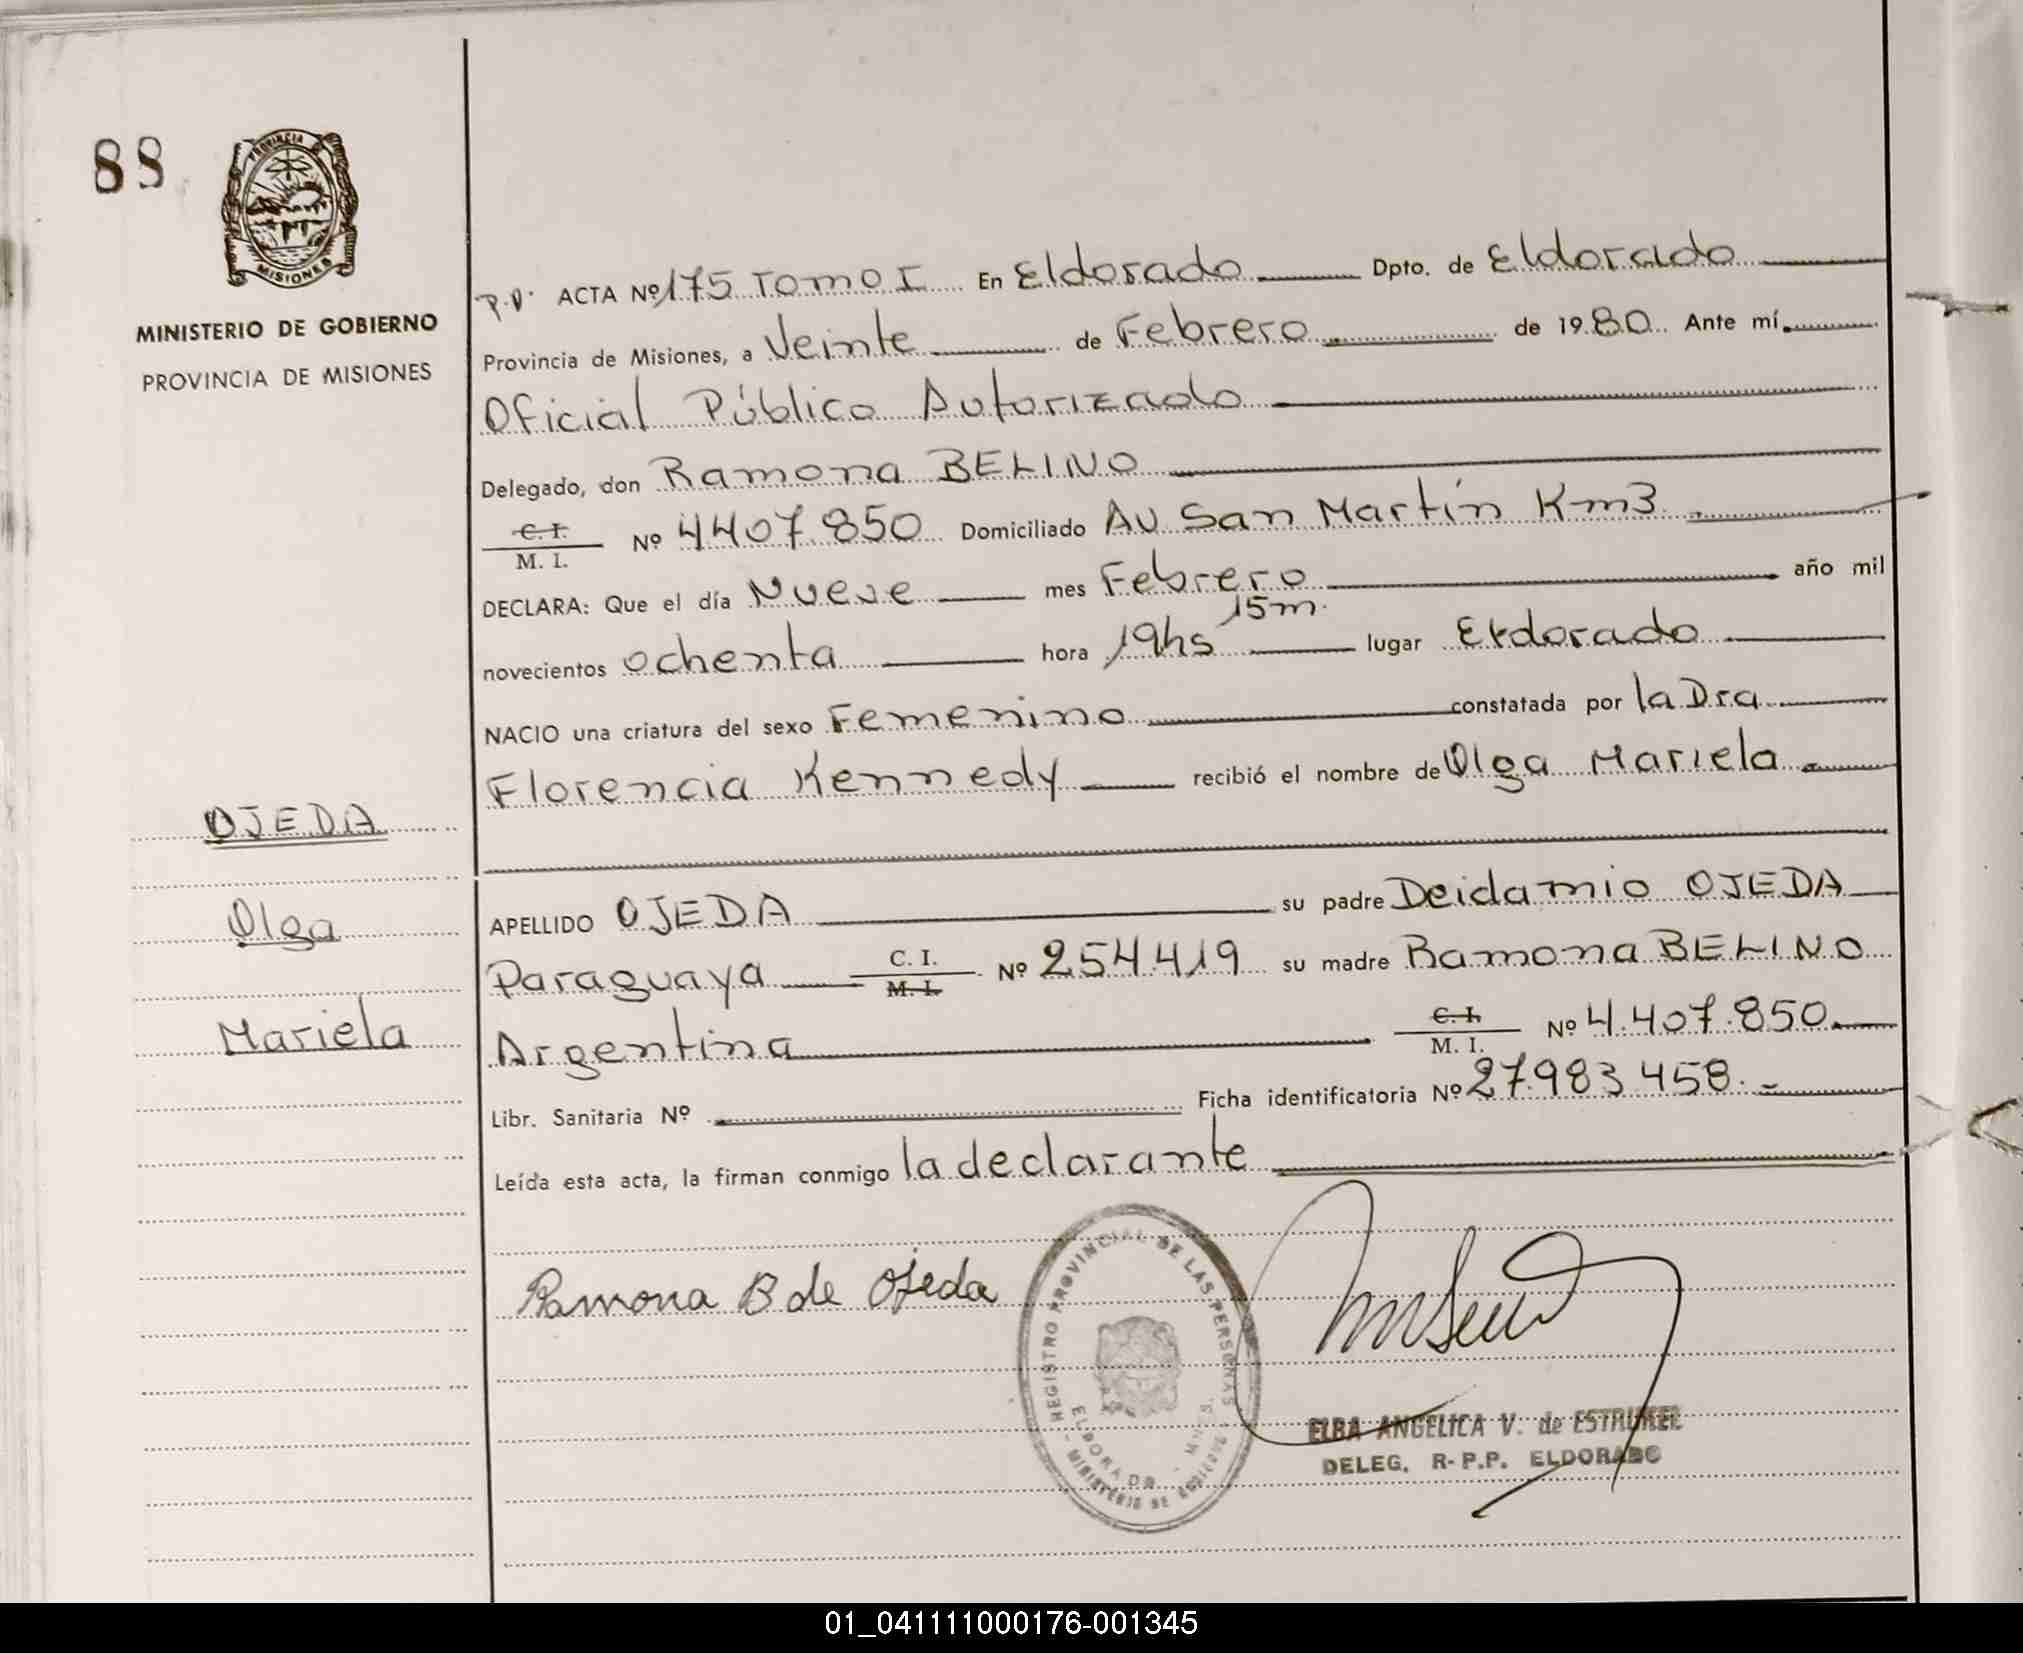 88
PROVINCIA
MISIONES
MINISTERIO DE GOBIERNO
PROVINCIA DE MISIONES
ACTA Nº 175 Tomo I En Eldorado Dpto. de Eldorado
Provincia de Misiones, a Veinte de Febrero de 1980. Ante mí
Oficial Público Autorizado
Delegado, don Ramona BELINO
C. I.
M. I.
Nº 4407.850 Domiciliado Av San Martín Km3
DECLARA: Que el día Nueve mes Febrero año mil
novecientos ochenta hora 19hs 15m. lugar Eldorado
NACIO una criatura del sexo Femenino constatada por la Dra
Florencia Kennedy recibió el nombre de Olga Mariela
OJEDA
Olga
Mariela
APELLIDO OJEDA su padre Deidamio OJEDA
Paraguaya C. I. M. I. Nº 254.419 su madre Ramona BELINO
Argentina C. I. M. I. Nº 4.407.850
Libr. Sanitaria Nº Ficha identificatoria Nº 27.983.458.
Leída esta acta, la firman conmigo la declarante
Ramona B de Ojeda
REGISTRO PROVINCIAL DE LAS PERSONAS
ELDORADO
MINISTERIO DE
ELBA ANGELICA V. de
DELEG. R-P.P. ELDORADO
01_041111000176-001345